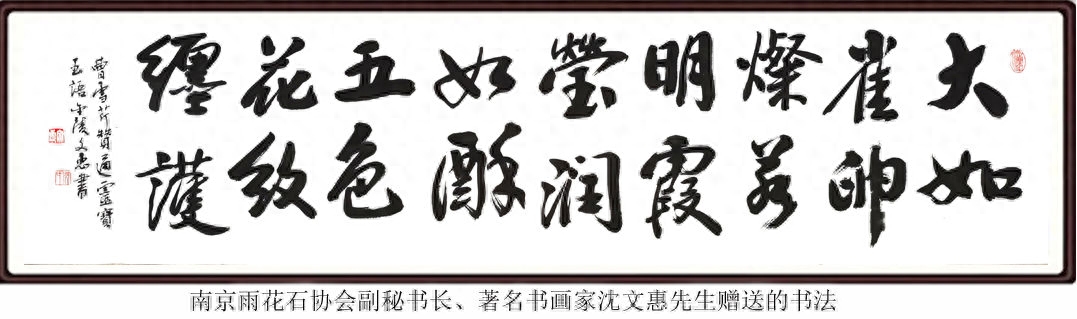 大如
雀卵
燦若
明霞
瑩潤
如酥
五色
花紋
纏護
曹雪芹贊通靈寶
玉語金陵文惠書
南京雨花石协会副秘书长、著名书画家沈文惠先生赠送的书法